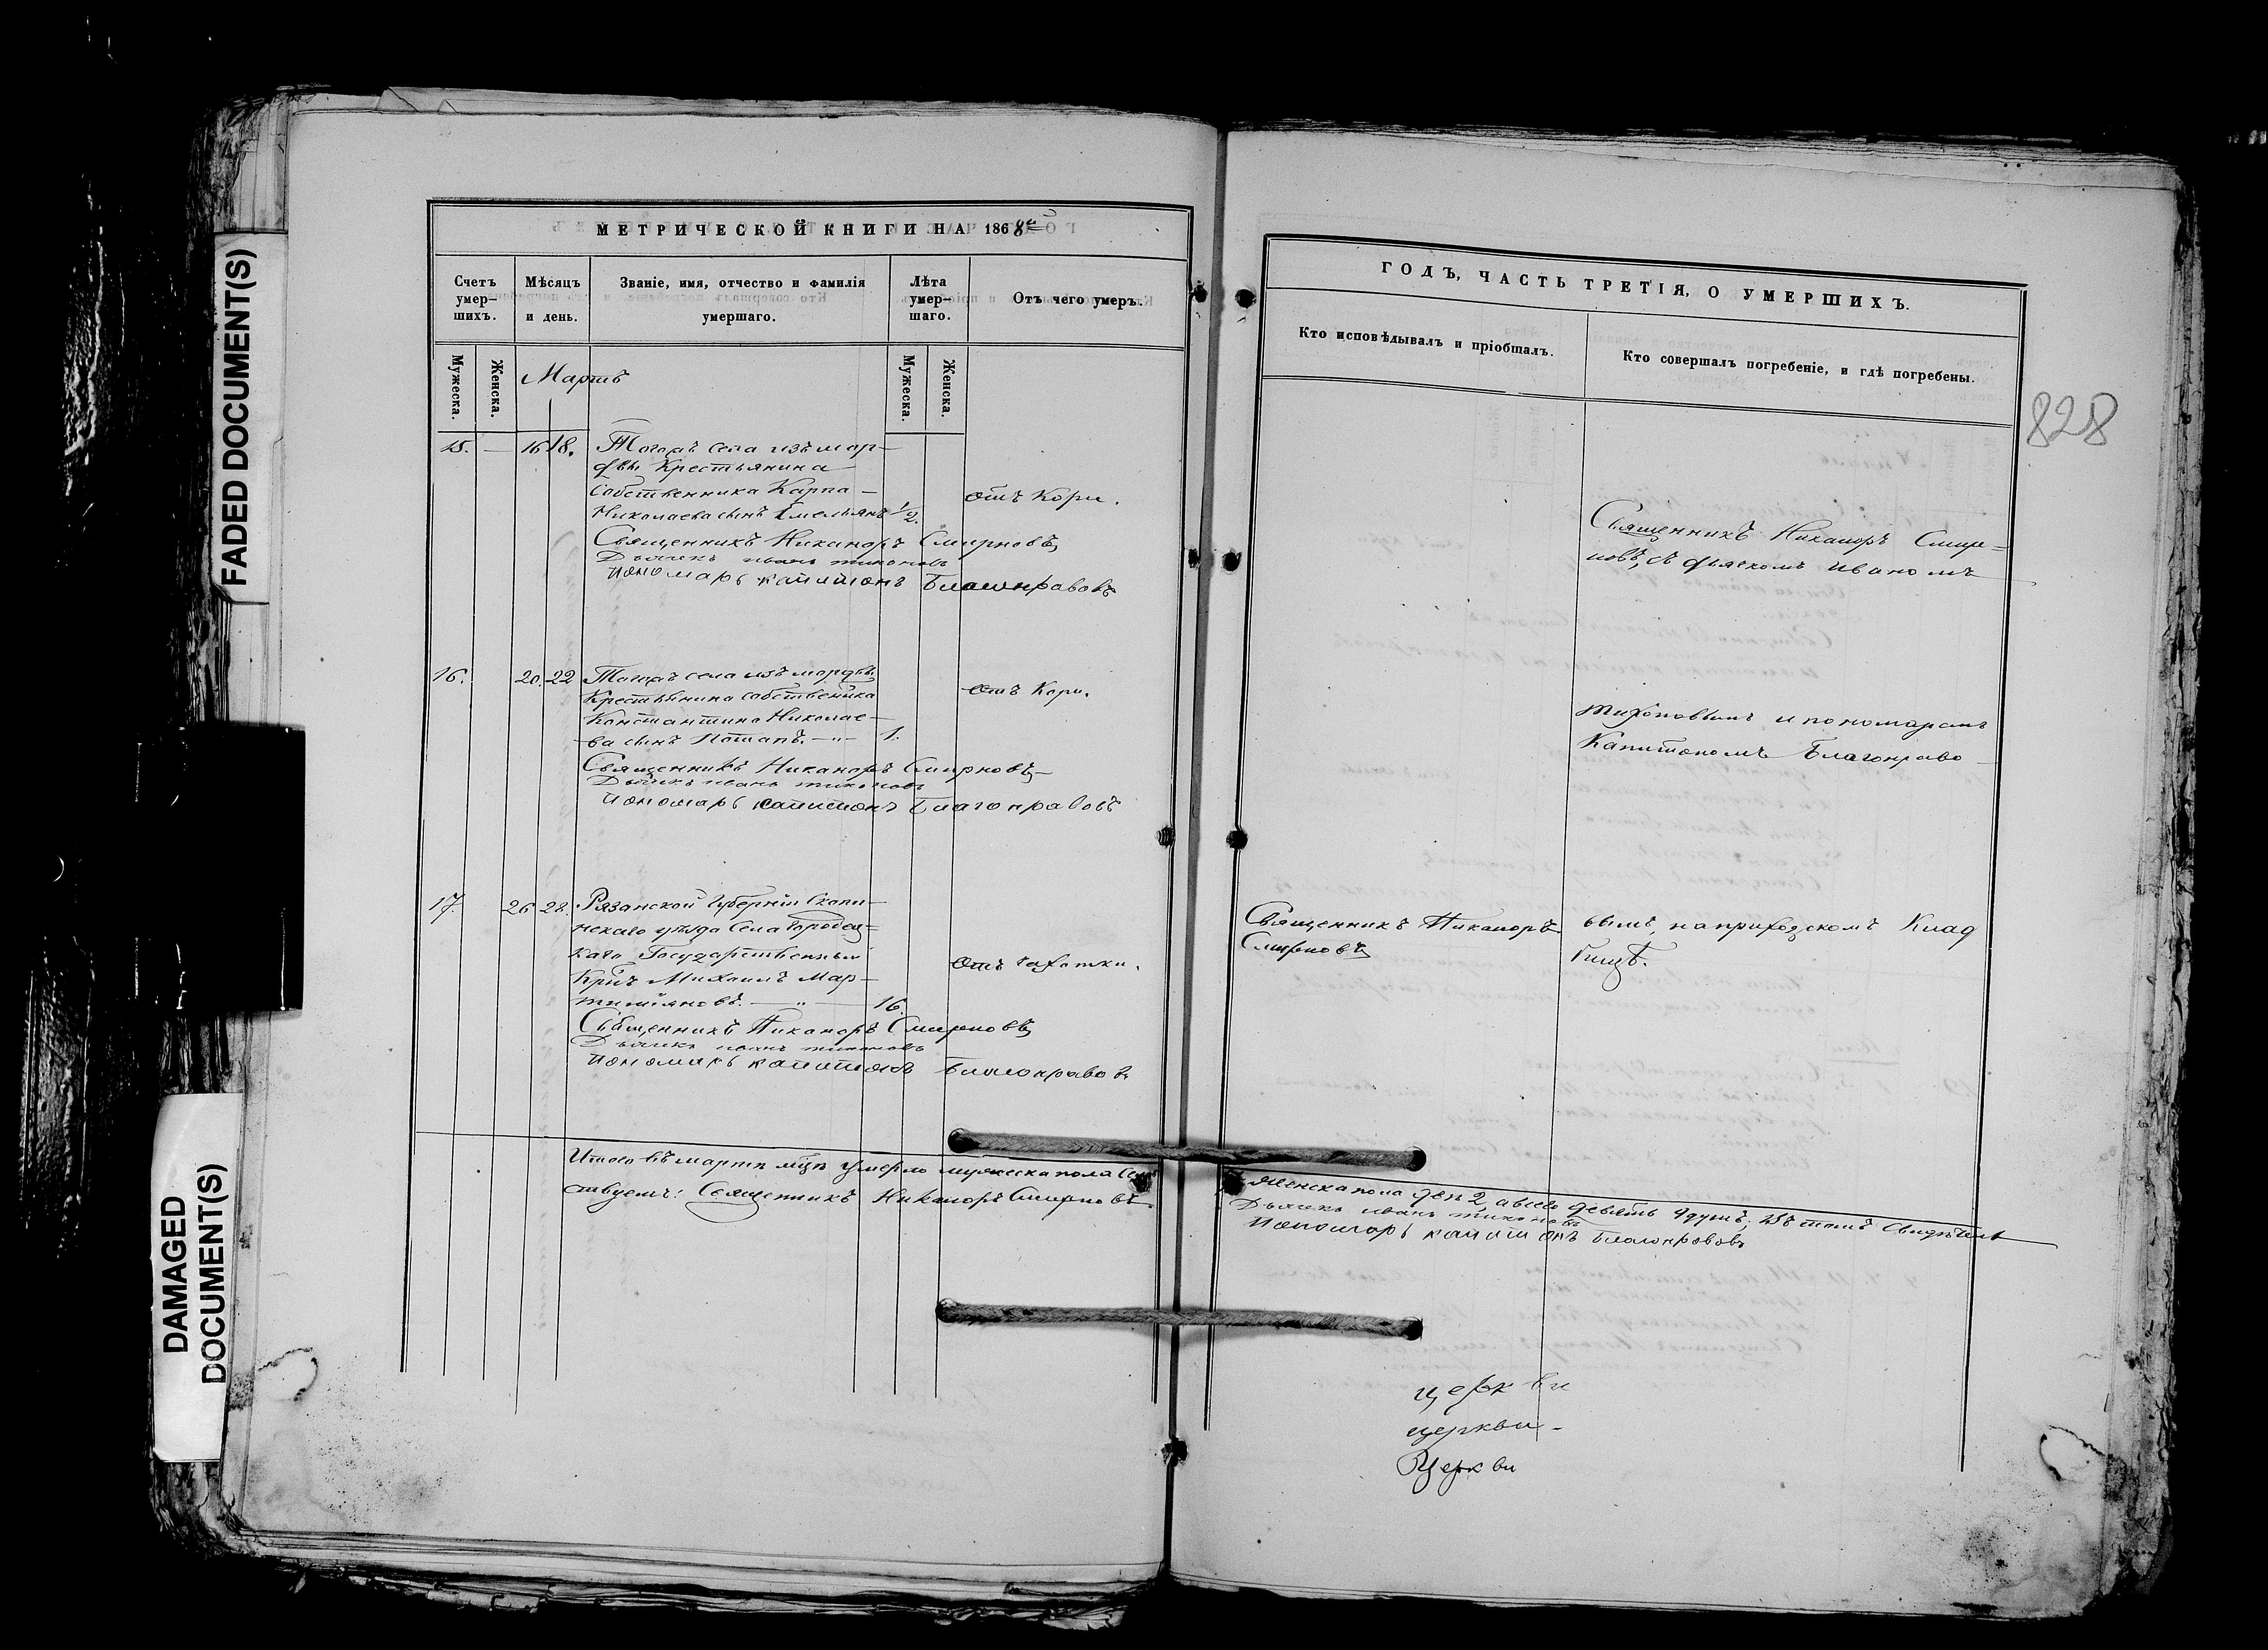 FADED DOCUMENT(S)
DAMAGED
DOCUMENT(S)
МЕТРИЧЕСКОЙ КНИГИ НА 1868й
Счетъ умер-шихъ.
Мѣсяцъ и день.
Званіе, имя, отчество и фамилія умершаго.
Лѣта умер-шаго.
Отъ чего умеръ.
Мужеска.
Женска.
Мартъ
Мужеска.
Женска.
15. — 16 18. Тогожъ села изъ мор-
двы Крестьянина
Собственника Карпа —
Николаева сынъ Емельянъ 1/2.
отъ Кори.
Священникъ Никаноръ Смирновъ
Дьячекъ иванъ тихоновъ
пономарь капитонъ Благонравовъ
16. 20. 22 Тогожъ села изъ мордвы
Крестьянина собственика
Константина Николае-
ва сынъ Потапъ. —"— 1.
отъ Кори.
Священникъ Никаноръ Смирновъ
Дьячекъ иванъ тихоновъ
пономарь капитонъ Благонравовъ
17. 26 28. Рязанской Губерніи Скопи-
нскаго уѣзда Села Городец-
каго Государственный
Крнъ Михаилъ Мар-
тиніановъ. —"— 16.
отъ чахотки.
Священникъ Никаноръ Смирновъ
Дьячекъ иванъ тихоновъ
пономарь капитонъ Благонравовъ
Итого въ мартѣ мцѣ умерло мужеска пола Семь
ствуемъ: Священникъ Никаноръ Смирновъ.
ГОДЪ, ЧАСТЬ ТРЕТІЯ, О УМЕРШИХЪ.
Кто исповѣдывалъ и пріобщалъ.
Кто совершалъ погребеніе, и гдѣ погребены.
828
Священникъ Никаноръ Смир-
новъ, съ дьячкомъ Иваномъ
тихоновымъ и пономаремъ
Капитономъ Благонраво
Священникъ Никаноръ
Смирновъ
вымъ, на приходскомъ Клад
бищѣ.
женска пола двѣ 2, а всего девять 9 душъ; Въ томъ свидѣтель
Дьячекъ иванъ тихоновъ
Пономарь капитонъ Благонравовъ
церкви
церкви -
Церкви